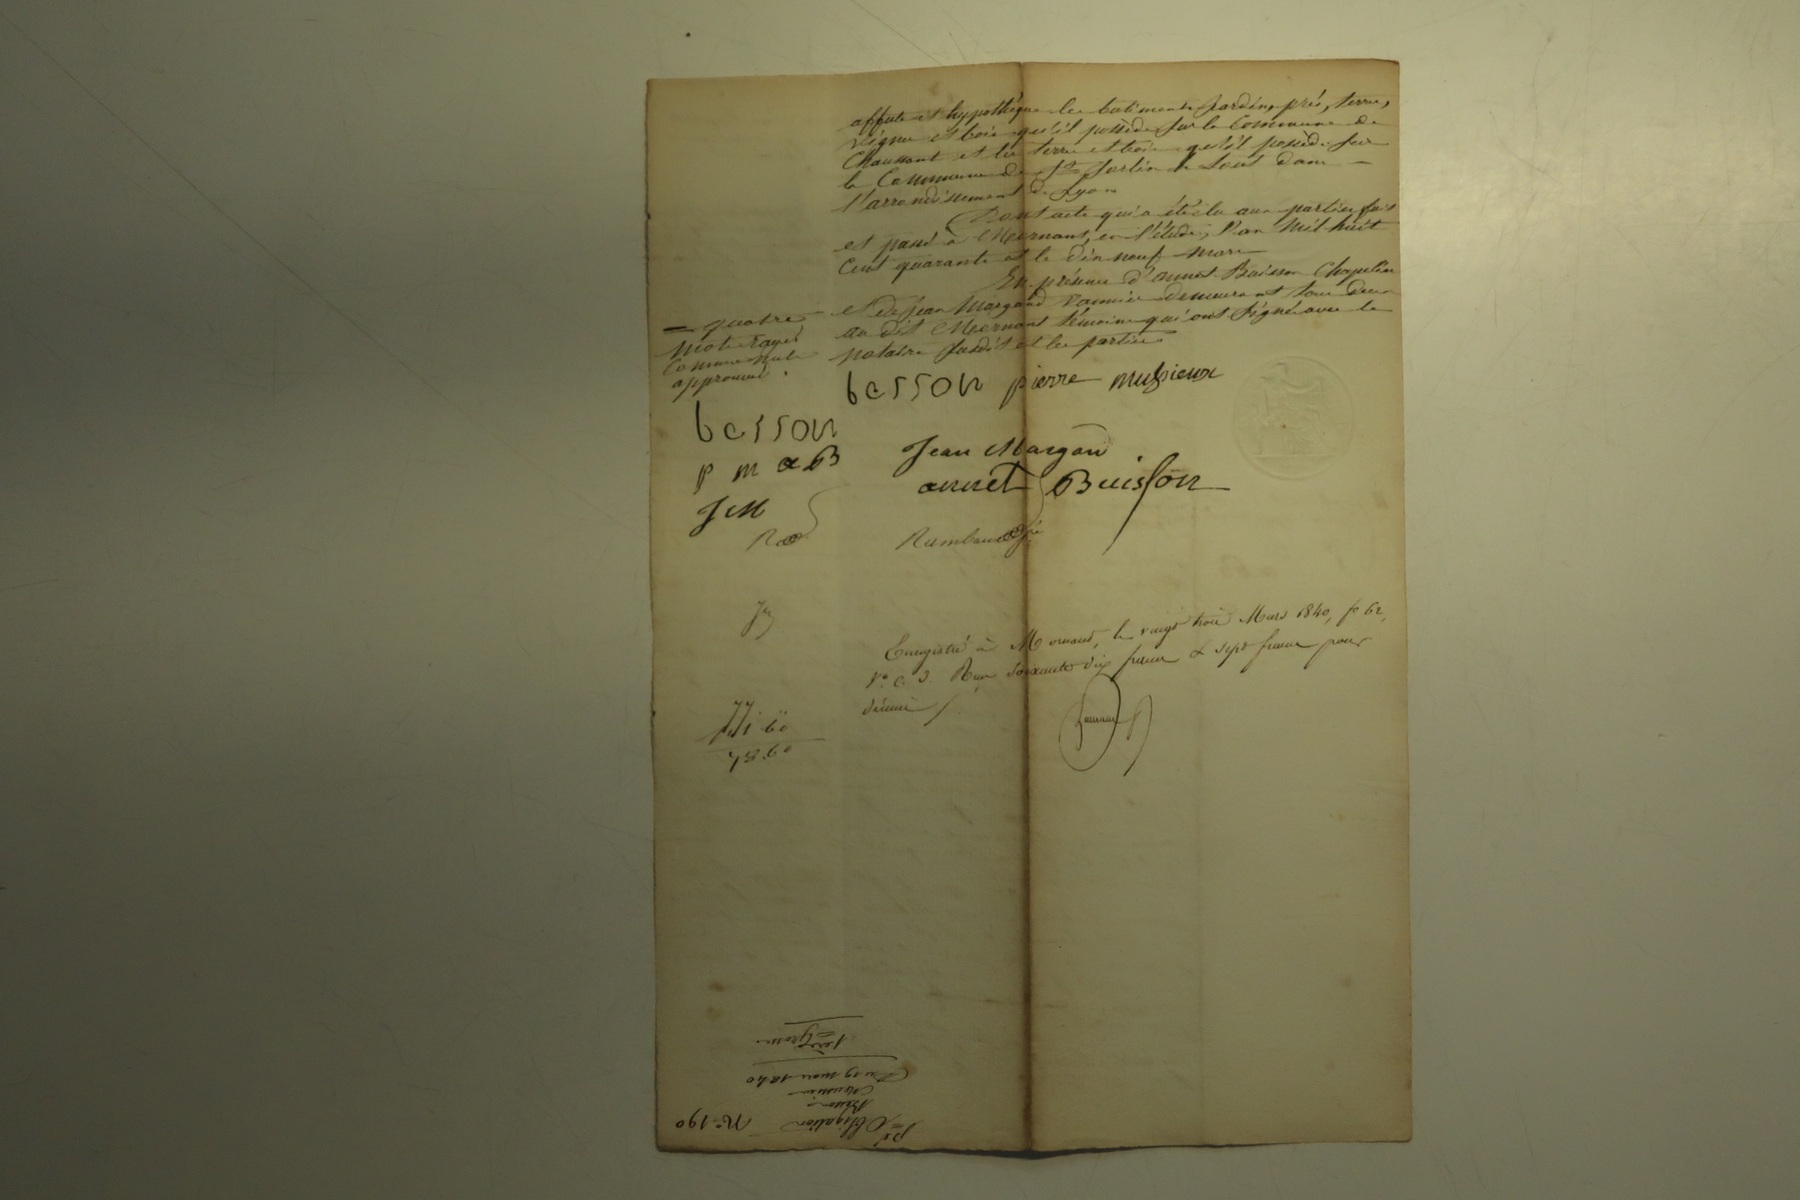 affecte et hypothèque les batiments, Jardin, prés, terres,
vignes et bois qu'il possède sur la Commune de
Chaussant et les terres et bois qu'il possède sur
la Commune de St Sorlin le tout dans
l'arrondissement de Lyon
Dont acte qui a été lu aux parties, fait
et passé à Mornant, en l'étude, l'an Mil huit
Cent quarante et le dix neuf mars
En présence d'annet Buisson Chapelier
et de Jean Margand vannier demeurant tous deux
au dit Mornant témoins qui ont signé avec le
notaire susdit et les parties
quatre
mots rayés
Comme nuls
approuvé.
besson pierre mussieux
besson
p m a B
Jean Margan
annet Buisson
J M
Rambaud
Enregistré à Mornant, le vingt trois Mars 1840, fo 62,
Vo. c. 3. Reçu soixante dix francs & sept francs pour
décime
77
1.60
78.60
No 190
pr Obligation
Besson
Mussieux
Du 19 mars 1840
1ère Grosse